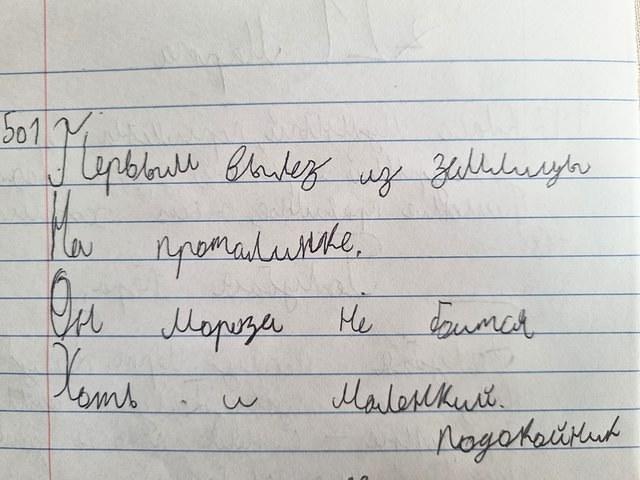 501
Первым вылез из землицы
На проталинке.
Он мороза не боится
Хоть и маленкий.
подокойник